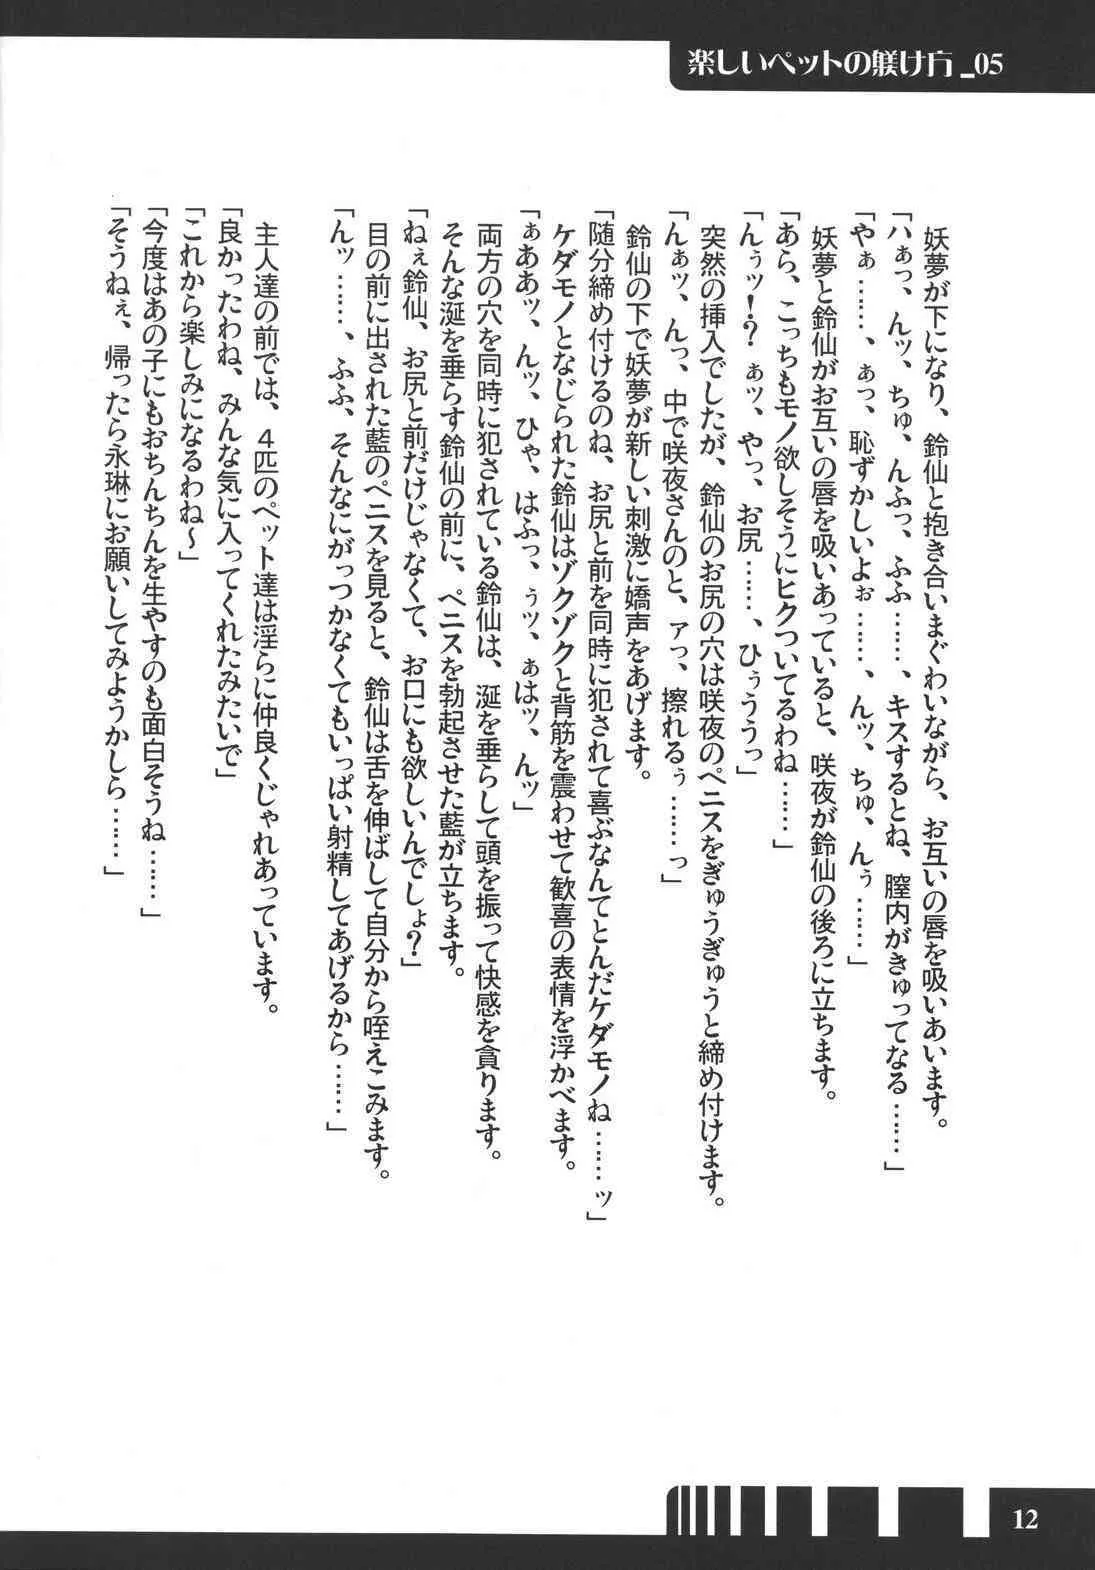 楽しいペットの躾け方_05
妖夢が下になり、鈴仙と抱き合いまぐわいながら、お互いの唇を吸いあいます。
「ハぁっ、んッ、ちゅ、んふっ、ふふ……、キスするとね、膣内がきゅってなる……」
「やぁ……、ぁっ、恥ずかしいよぉ……、んッ、ちゅ、んぅ……」
妖夢と鈴仙がお互いの唇を吸いあっていると、咲夜が鈴仙の後ろに立ちます。
「あら、こっちもモノ欲しそうにヒクついてるわね……」
「んぅッ!? ぁッ、やっ、お尻……、ひぅううっ」
突然の挿入でしたが、鈴仙のお尻の穴は咲夜のペニスをぎゅうぎゅうと締め付けます。
「んぁッ、んっ、中で咲夜さんのと、ァっ、擦れるぅ……っ」
鈴仙の下で妖夢が新しい刺激に嬌声をあげます。
「随分締め付けるのね、お尻と前を同時に犯されて喜ぶなんてとんだケダモノね……ッ」
ケダモノとなじられた鈴仙はゾクゾクと背筋を震わせて歓喜の表情を浮かべます。
「ぁああッ、んッ、ひゃ、はふっ、ぅッ、ぁはッ、んッ」
両方の穴を同時に犯されている鈴仙は、涎を垂らして頭を振って快感を貪ります。
そんな涎を垂らす鈴仙の前に、ペニスを勃起させた藍が立ちます。
「ねぇ鈴仙、お尻と前だけじゃなくて、お口にも欲しいんでしょ?」
目の前に出された藍のペニスを見ると、鈴仙は舌を伸ばして自分から咥えこみます。
「んッ……、ふふ、そんなにがっつかなくてもいっぱい射精してあげるから……」
主人達の前では、4匹のペット達は淫らに仲良くじゃれあっています。
「良かったわね、みんな気に入ってくれたみたいで」
「これから楽しみになるわね〜」
「今度はあの子にもおちんちんを生やすのも面白そうね……」
「そうねぇ、帰ったら永琳にお願いしてみようかしら……」
12